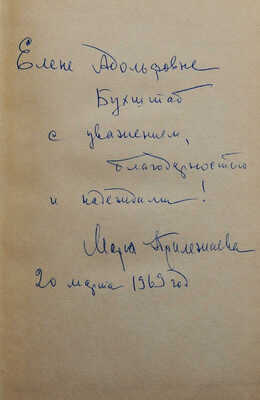 Елене Адольфовне
Бухштаб
с уважением,
благодарностью
и надеждами!
Мария Прилежаева
20 марта 1969 год